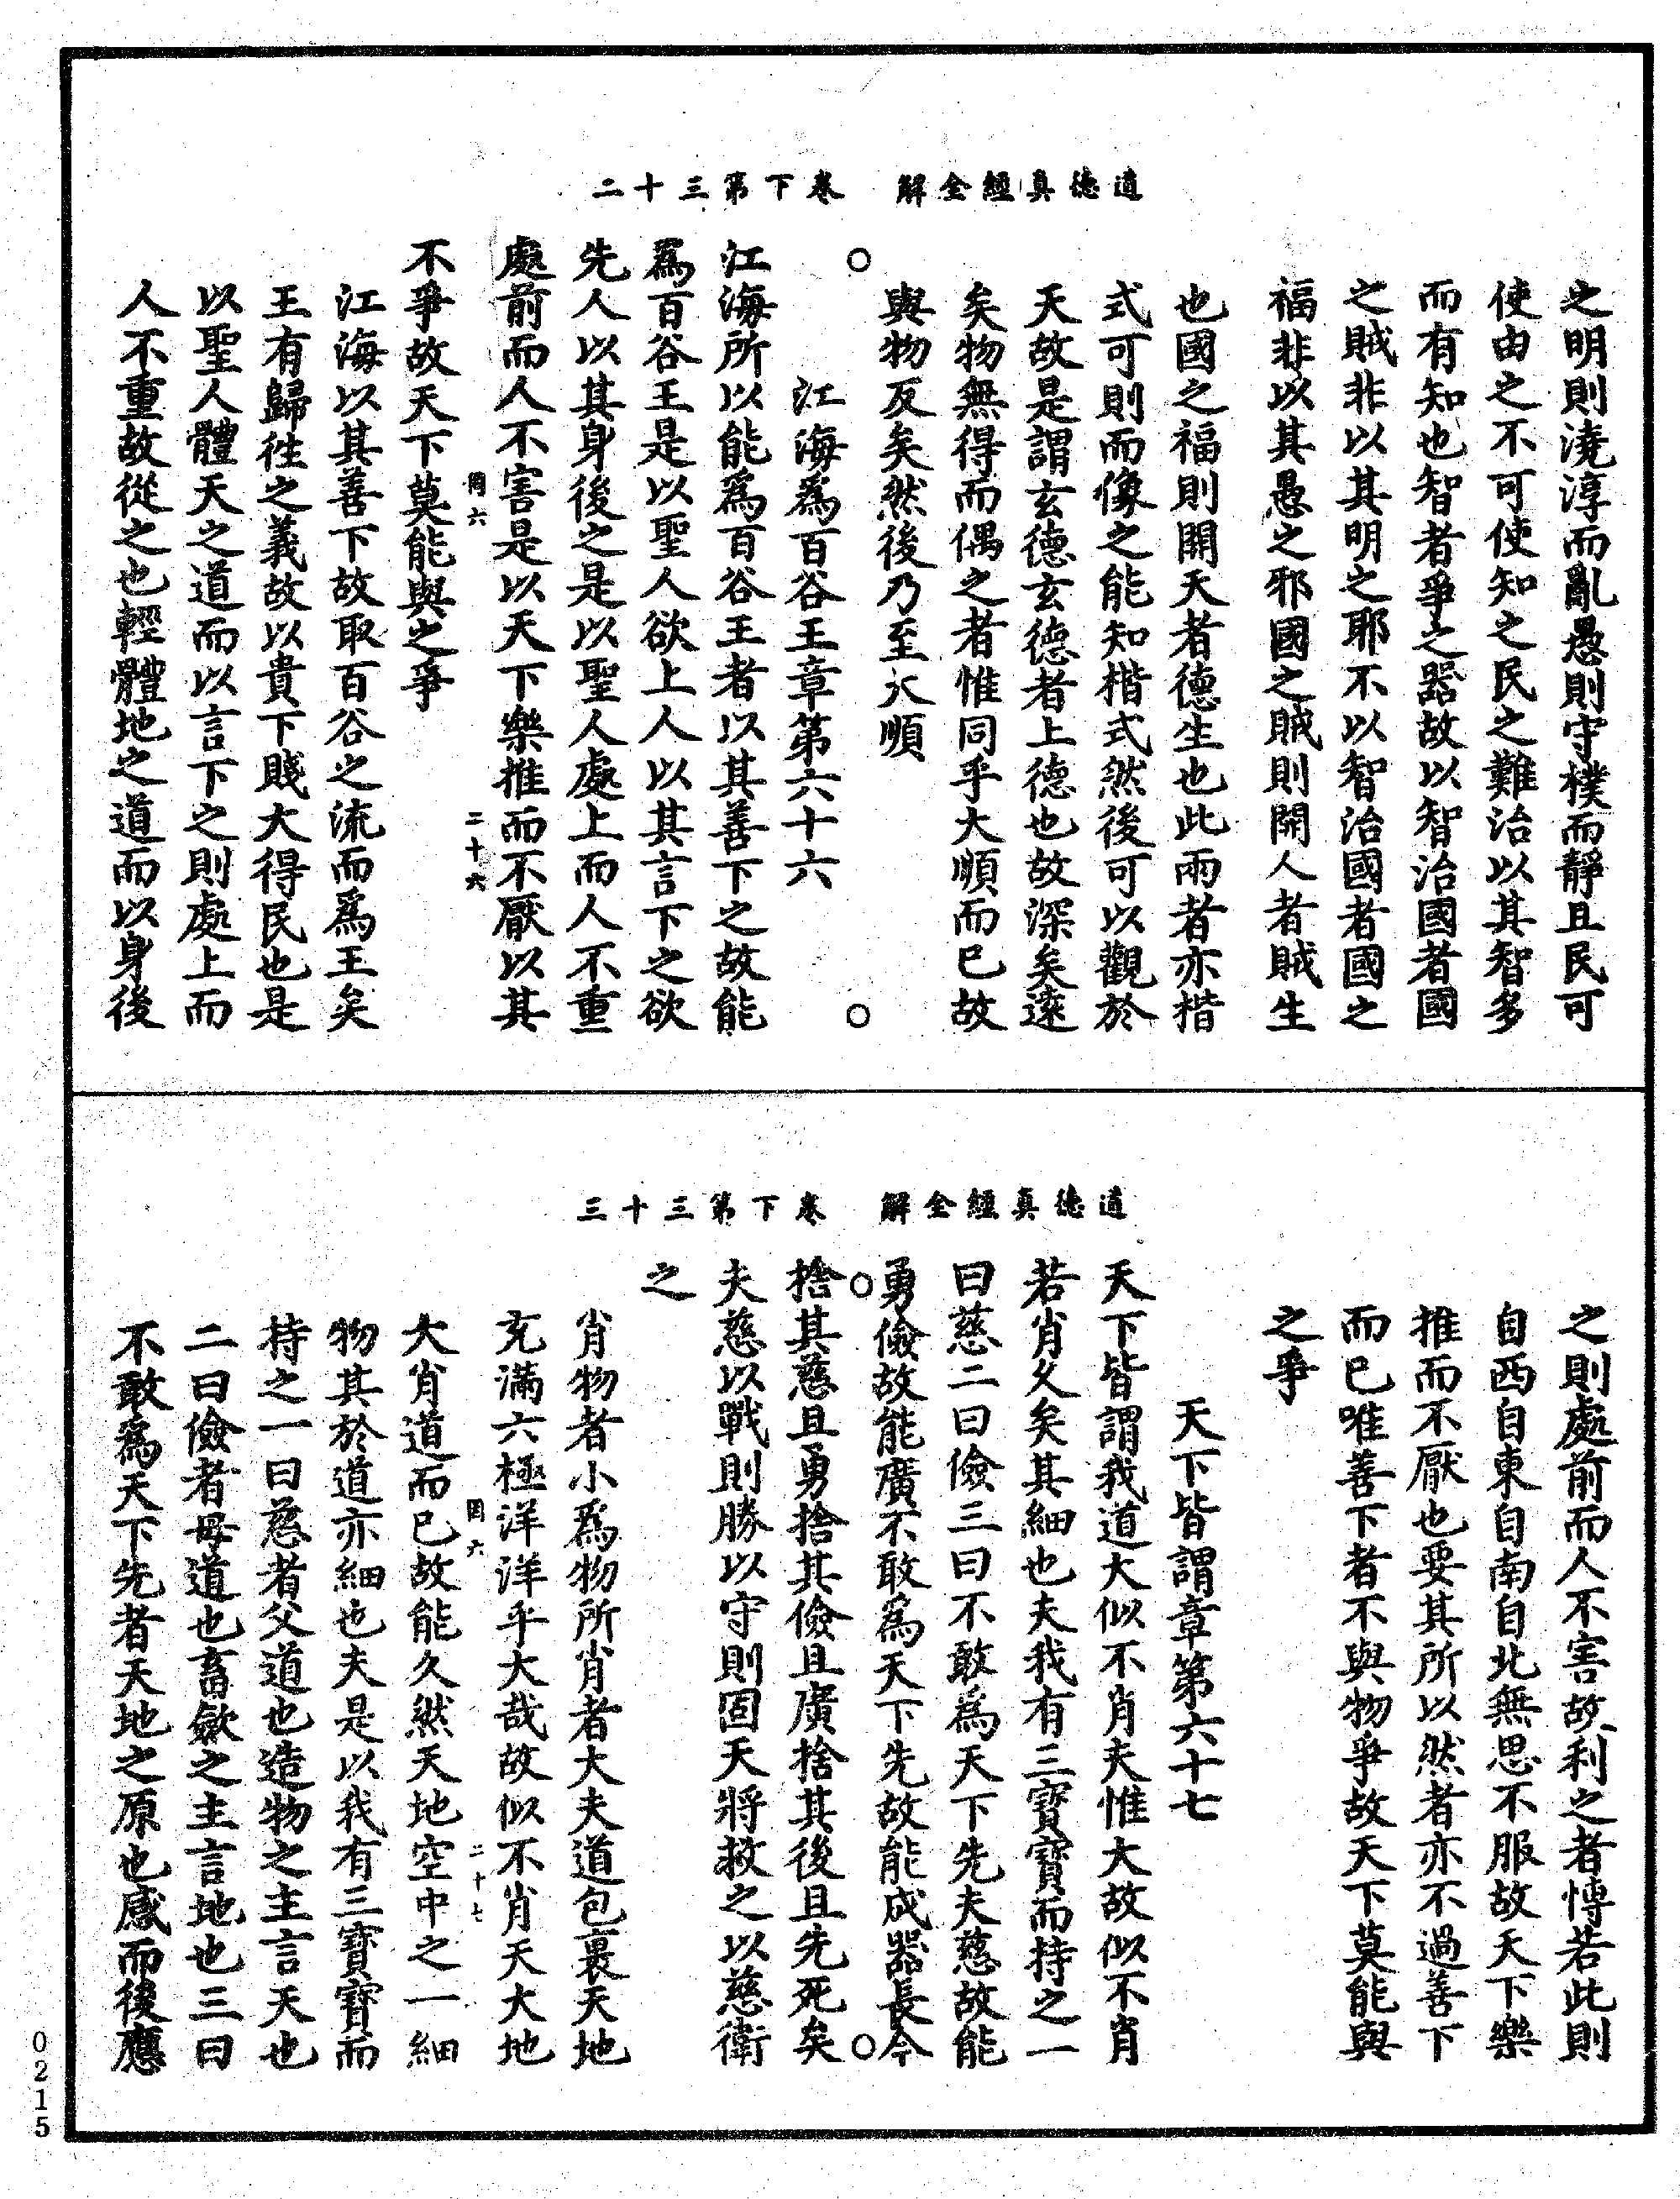 道德真經全解　卷下第三十二
之明則澆淳而亂愚則守樸而靜且民可
使由之不可使知之民之難治以其智多
而有知也智者爭之器故以智治國者國
之賊非以其明之耶不以智治國者國之
福非以其愚之邪國之賊則開人者賊生
也國之福則開天者德生也此兩者亦楷
式可則而像之能知楷式然後可以觀於
天故是謂玄德玄德者上德也故深矣遠
矣物無得而偶之者惟同乎大順而已故
與物反矣然後乃至大順
江海為百谷王章第六十六
江海所以能為百谷王者以其善下之故能
為百谷王是以聖人欲上人以其言下之欲
先人以其身後之是以聖人處上而人不重
處前而人不害是以天下樂推而不厭以其
罔六　二十六
不爭故天下莫能與之爭
江海以其善下故取百谷之流而為王矣
王有歸往之義故以貴下賤大得民也是
以聖人體天之道而以言下之則處上而
人不重故從之也輕體地之道而以身後
道德真經全解　卷下第三十三
之則處前而人不害故利之者博若此則
自西自東自南自北無思不服故天下樂
推而不厭也要其所以然者亦不過善下
而已唯善下者不與物爭故天下莫能與
之爭
天下皆謂章第六十七
天下皆謂我道大似不肖夫惟大故似不肖
若肖久矣其細也夫我有三寶寶而持之一
曰慈二曰儉三曰不敢為天下先夫慈故能
勇儉故能廣不敢為天下先故能成器長今
捨其慈且勇捨其儉且廣捨其後且先死矣
夫慈以戰則勝以守則固天將救之以慈衛
之
肖物者小為物所肖者大夫道包裹天地
充滿六極洋洋乎大哉故似不肖天大地
罔六　二十七
大肖道而已故能久然天地空中之一細
物其於道亦細也夫是以我有三寶寶而
持之一曰慈者父道也造物之主言天也
二曰儉者母道也畜斂之主言地也三曰
不敢為天下先者天地之原也感而後應
0215